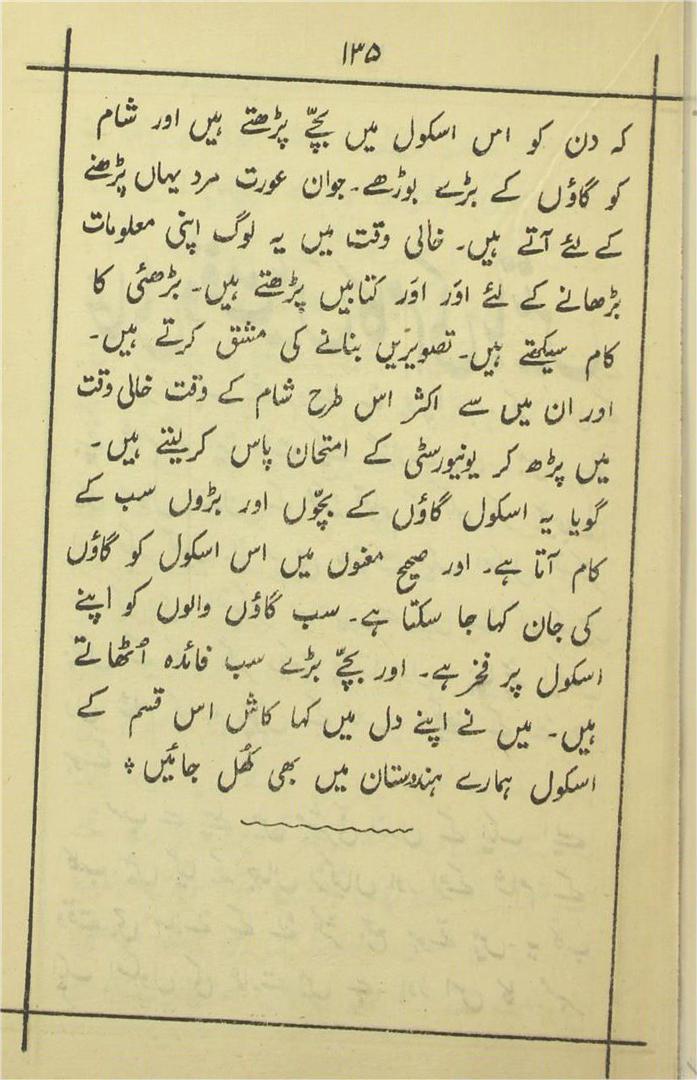 ۱۳۵
کہ دن کو اس اسکول میں بچّے پڑھتے ہیں اور شام
کو گاؤں کے بڑے بوڑھے۔ جوان عورت مرد یہاں پڑھنے
کے لئے آتے ہیں۔ خالی وقت میں یہ لوگ اپنی معلومات
بڑھانے کے لئے اَور اور اَور کتابیں پڑھتے ہیں۔ بڑھئی کا
کام سیکھتے ہیں۔ تصویریں بنانے کی مشق کرتے ہیں۔
اور ان میں سے اکثر اس طرح شام کے وقت خالی وقت
میں پڑھ کر یونیورسٹی کے امتحان پاس کرلیتے ہیں۔
گویا یہ اسکول گاؤں کے بچّوں اور بڑوں سب کے
کام آتا ہے۔ اور صحیح معنوں میں اس اسکول کو گاؤں
کی جان کہا جا سکتا ہے۔ سب گاؤں والوں کو اپنے
اسکول پر فخر ہے۔ اور بچّے بڑے سب فائدہ اُٹھاتے
ہیں۔ میں نے اپنے دل میں کہا کاش اس قسم کے
اسکول ہمارے ہندوستان میں بھی کُھل جائیں ؞